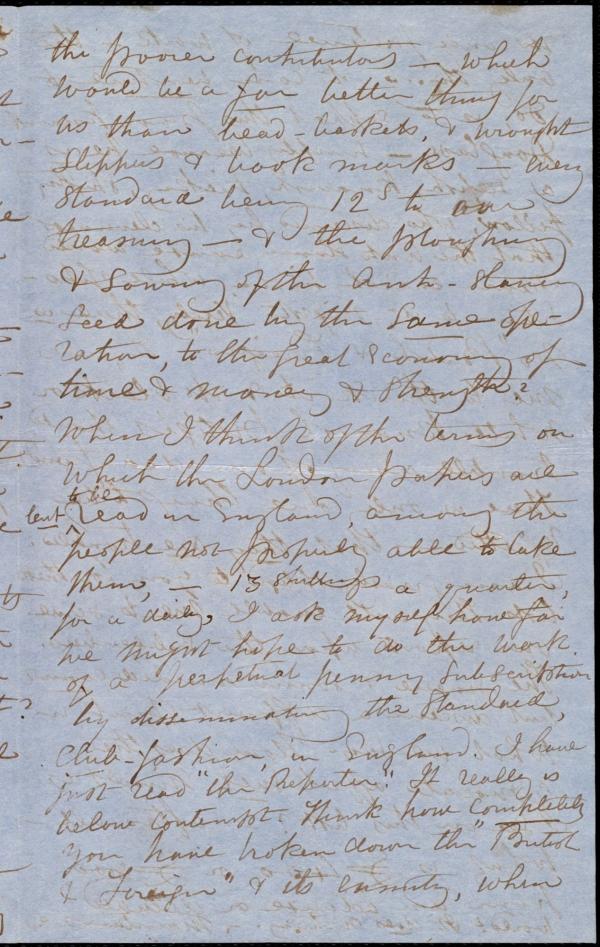 the poorer contributors — which
would be a far better thing for
us than bead-baskets, & wrought
slippers & book marks — every
Standard being 12s to our
treasury — & the ploughing
& sowing of the Anti-Slavery
seed done by the same ope-
ration, to the great economy of
time & money & strength?
When I think of the terms on
which the London papers are
lent to be read in England, among the
people not properly able to take
them, — 13 shillings a quarter,
for a daily, I ask myself how far
we might hope to do the work
of a perpetual penny subscription
by disseminating the Standard,
club-fashion, in England. I have
just read "the Reporter". It really is
below contempt. Think how completely
you have broken down the "British
& Foreign" & its enmity, when